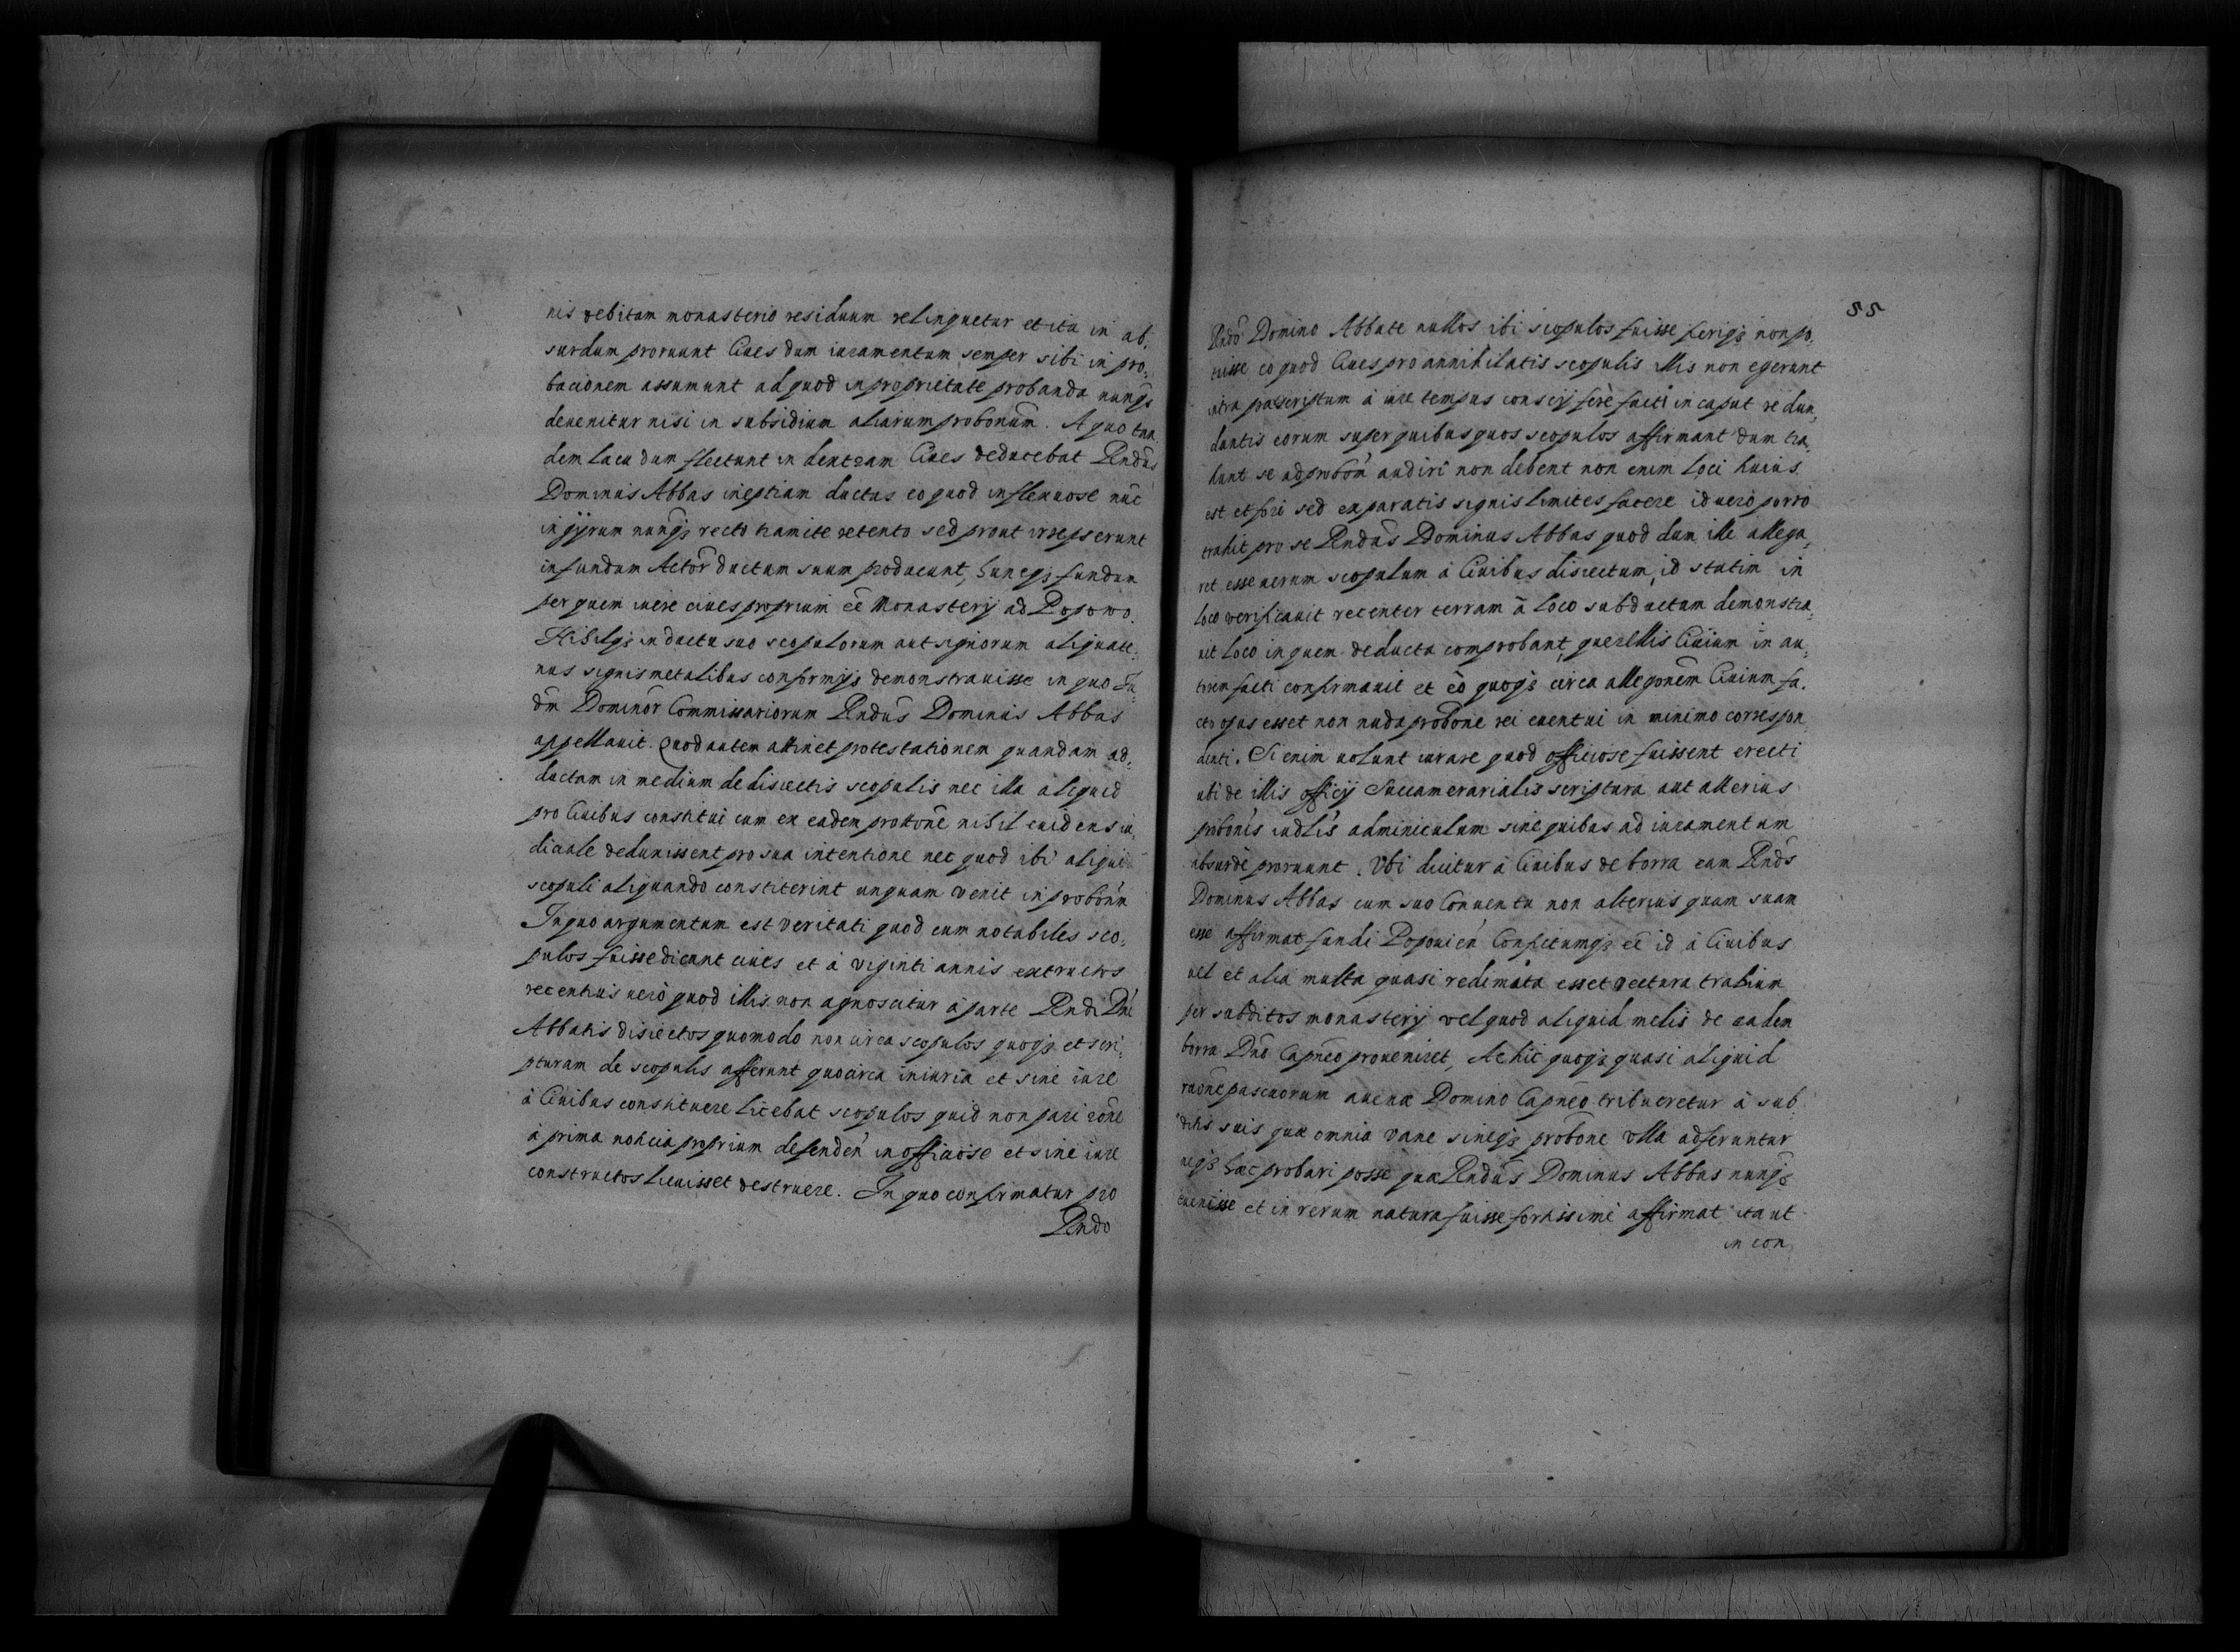 nis debitam monasterio residuum relinquetur et ita in ab,
surdum proruunt Ciues dum iuramentum semper sibi in pro,
bacionem assumunt ad quod in proprietate probanda nunq3
deuenitur nisi in subsidium aliarum probonum. A quo tan
dem lacu dum flectunt in dextram Ciues deducebat Rndus
Dominus Abbas ineptiam ductus eo quod inflexuose nūc
in gyrum nunq3 recto tramite retento sed prout irrepserunt
in fundum Actor ductum suum producunt, huncq3 fundum
per quem iuere ciues proprium eē Monasterij ad Popowo.
Nihilq3 in ductu suo scopulorum aut signorum aliquate,
nus signis metalibus conformijs demonstrauisse in quo Iu,
dm Dominor Commissariorum Rndus Dominus Abbas
appellauit. Quod autem attinet protestationem quandam ad,
ductam in medium de disiectis scopulis nec illa aliquid
pro Ciuibus constitui cum ex eadem protone nihil euidens iu,
diciale deduxissent pro sua intentione nec quod ibi aliqui
scopuli aliquando constiterint unquam venit in probonm
In quo argumentum est veritati quod cum notabiles sco,
pulos fuisse dicant ciues et à viginti annis extructos
recentius uerò quod illis non agnoscitur à parte Rndi Dni
Abbatis disiectos quomodo non circa scopulos quoq3 et scri,
pturam de scopulis afferunt quocirca iniuria et sine iure
à Ciuibus constituere licebat scopulos quid non pari rōne
à prima noticia proprium defenden inofficiose et sine iure
constructos licuisset destruere. In quo confirmatur pro
Rndo
55
Rndo Domino Abbate nullos ibi scopulos fuisse feriq3 non po,
tuisse eo quod Ciues pro annihilatis scopulis illis non egerunt
intra praescriptum à iure tempus conscij ferè facti in caput redun,
dantis eorum super quibus quos scopulos affirmant dum tra,
hunt se ad probom audiri non debent non enim loci huius
est et fori sed ex paratis signis limites facere id uerò porro
trahit pro se Rndus Dominus Abbas quod dum ille allega,
ret esse uerum scopulum à Ciuibus disiectum, id statim in
loco verificauit recenter terram à loco subductam demonstra,
uit loco in quem deducta comprobant, querellis Ciuium in au,
torem facti confirmauit et eò quoq3 circa allegonem Ciuium fa,
cto opus esset non nuda probone rei euentui in minimo correspon
denti. Si enim uolunt iurare quod officiose fuissent erecti
ubi de illis officij Succamerarialis scriptura aut alterius
probonis iudlis adminiculum sine quibus ad iuramentum
absurdè proruunt. Vbi dicitur à Ciuibus de borra eam Rnds
Dominus Abbas cum suo Conuentu non alterius quam suam
esse affirmat fundi Popouien Confictumq3 eē id à Ciuibus
uel et alia multa quasi redimata esset vectura trabium
per subditos monasterij vel quod aliquid melis de eadem
borra Dno Capneo proueniret, Ac hic quoq3 quasi aliquid
raōne pascuorum auenae Domino Capneo tribueretur à sub,
ditis suis quae omnia vane sineq3 probone vlla adferuntur
neq3 haec probari posse quae Rndus Dominus Abbas nunq3
euenisse et in rerum natura fuisse fortissime affirmat ita ut
in con,